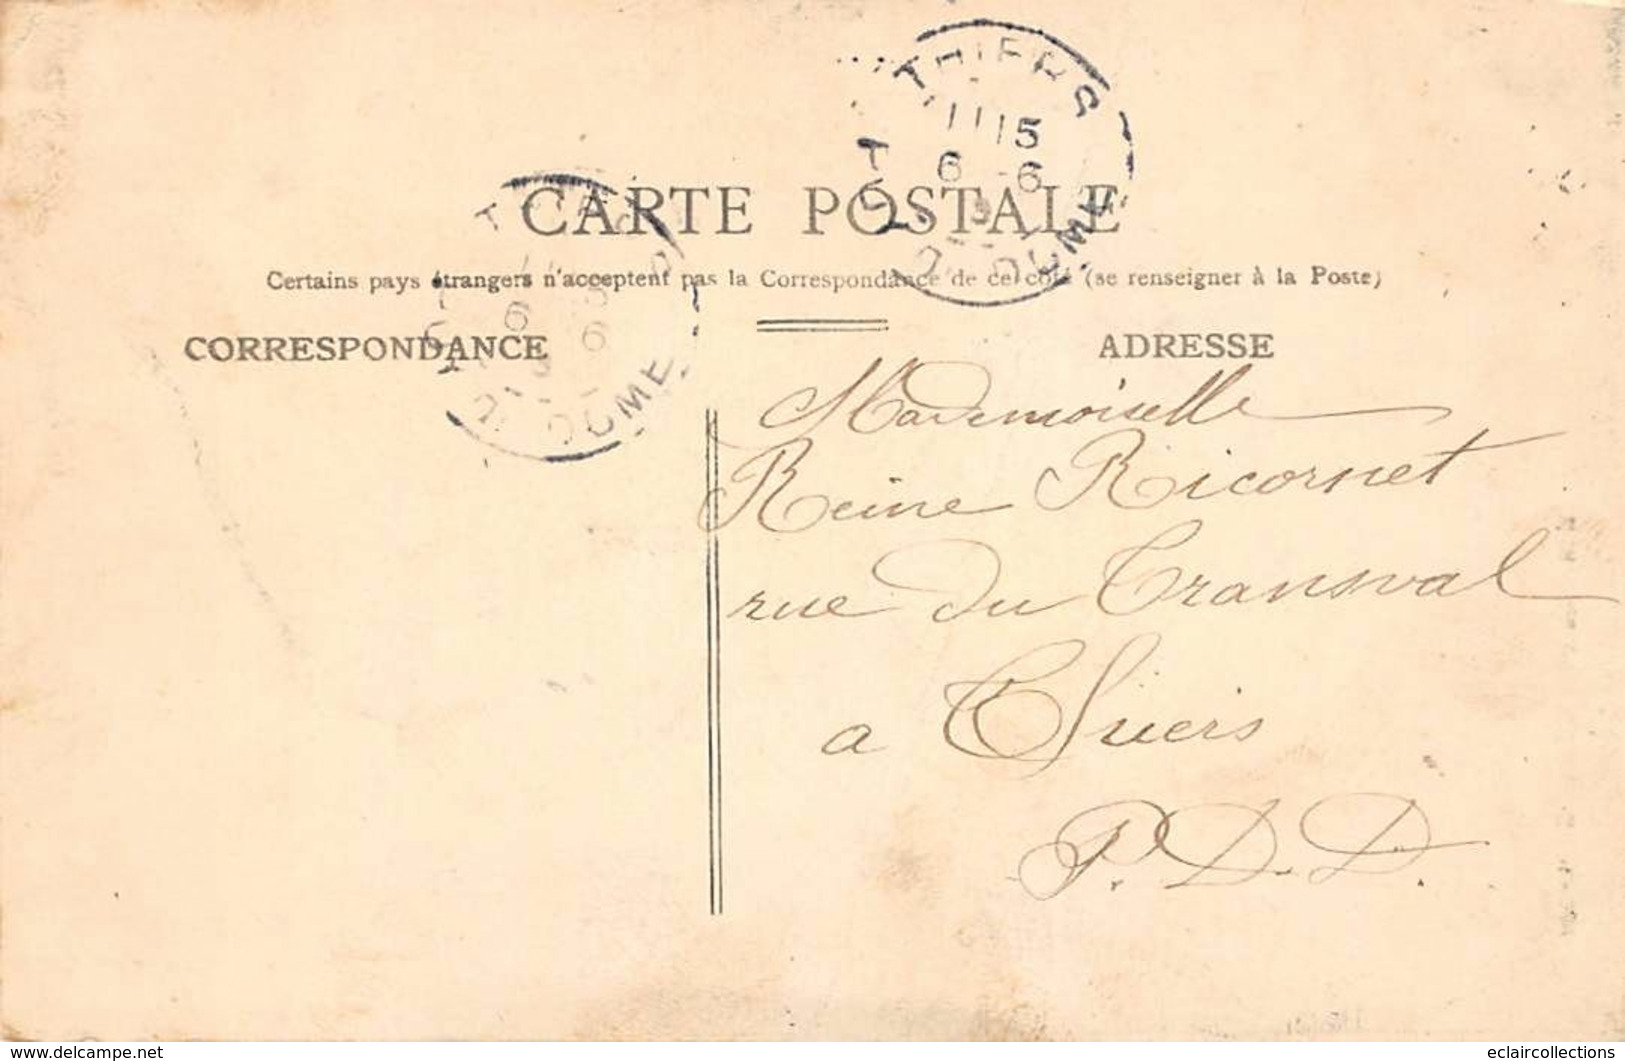 THIERS
11 15
6 -6
PUY-DE-DOME
CARTE POSTALE
Certains pays étrangers n'acceptent pas la Correspondance de ce coté (se renseigner à la Poste)
CORRESPONDANCE
ADRESSE
Mademoiselle
Reine Ricornet
rue du Transval
a Thiers
P. D. D.
www.delcampe.net
eclaircollections